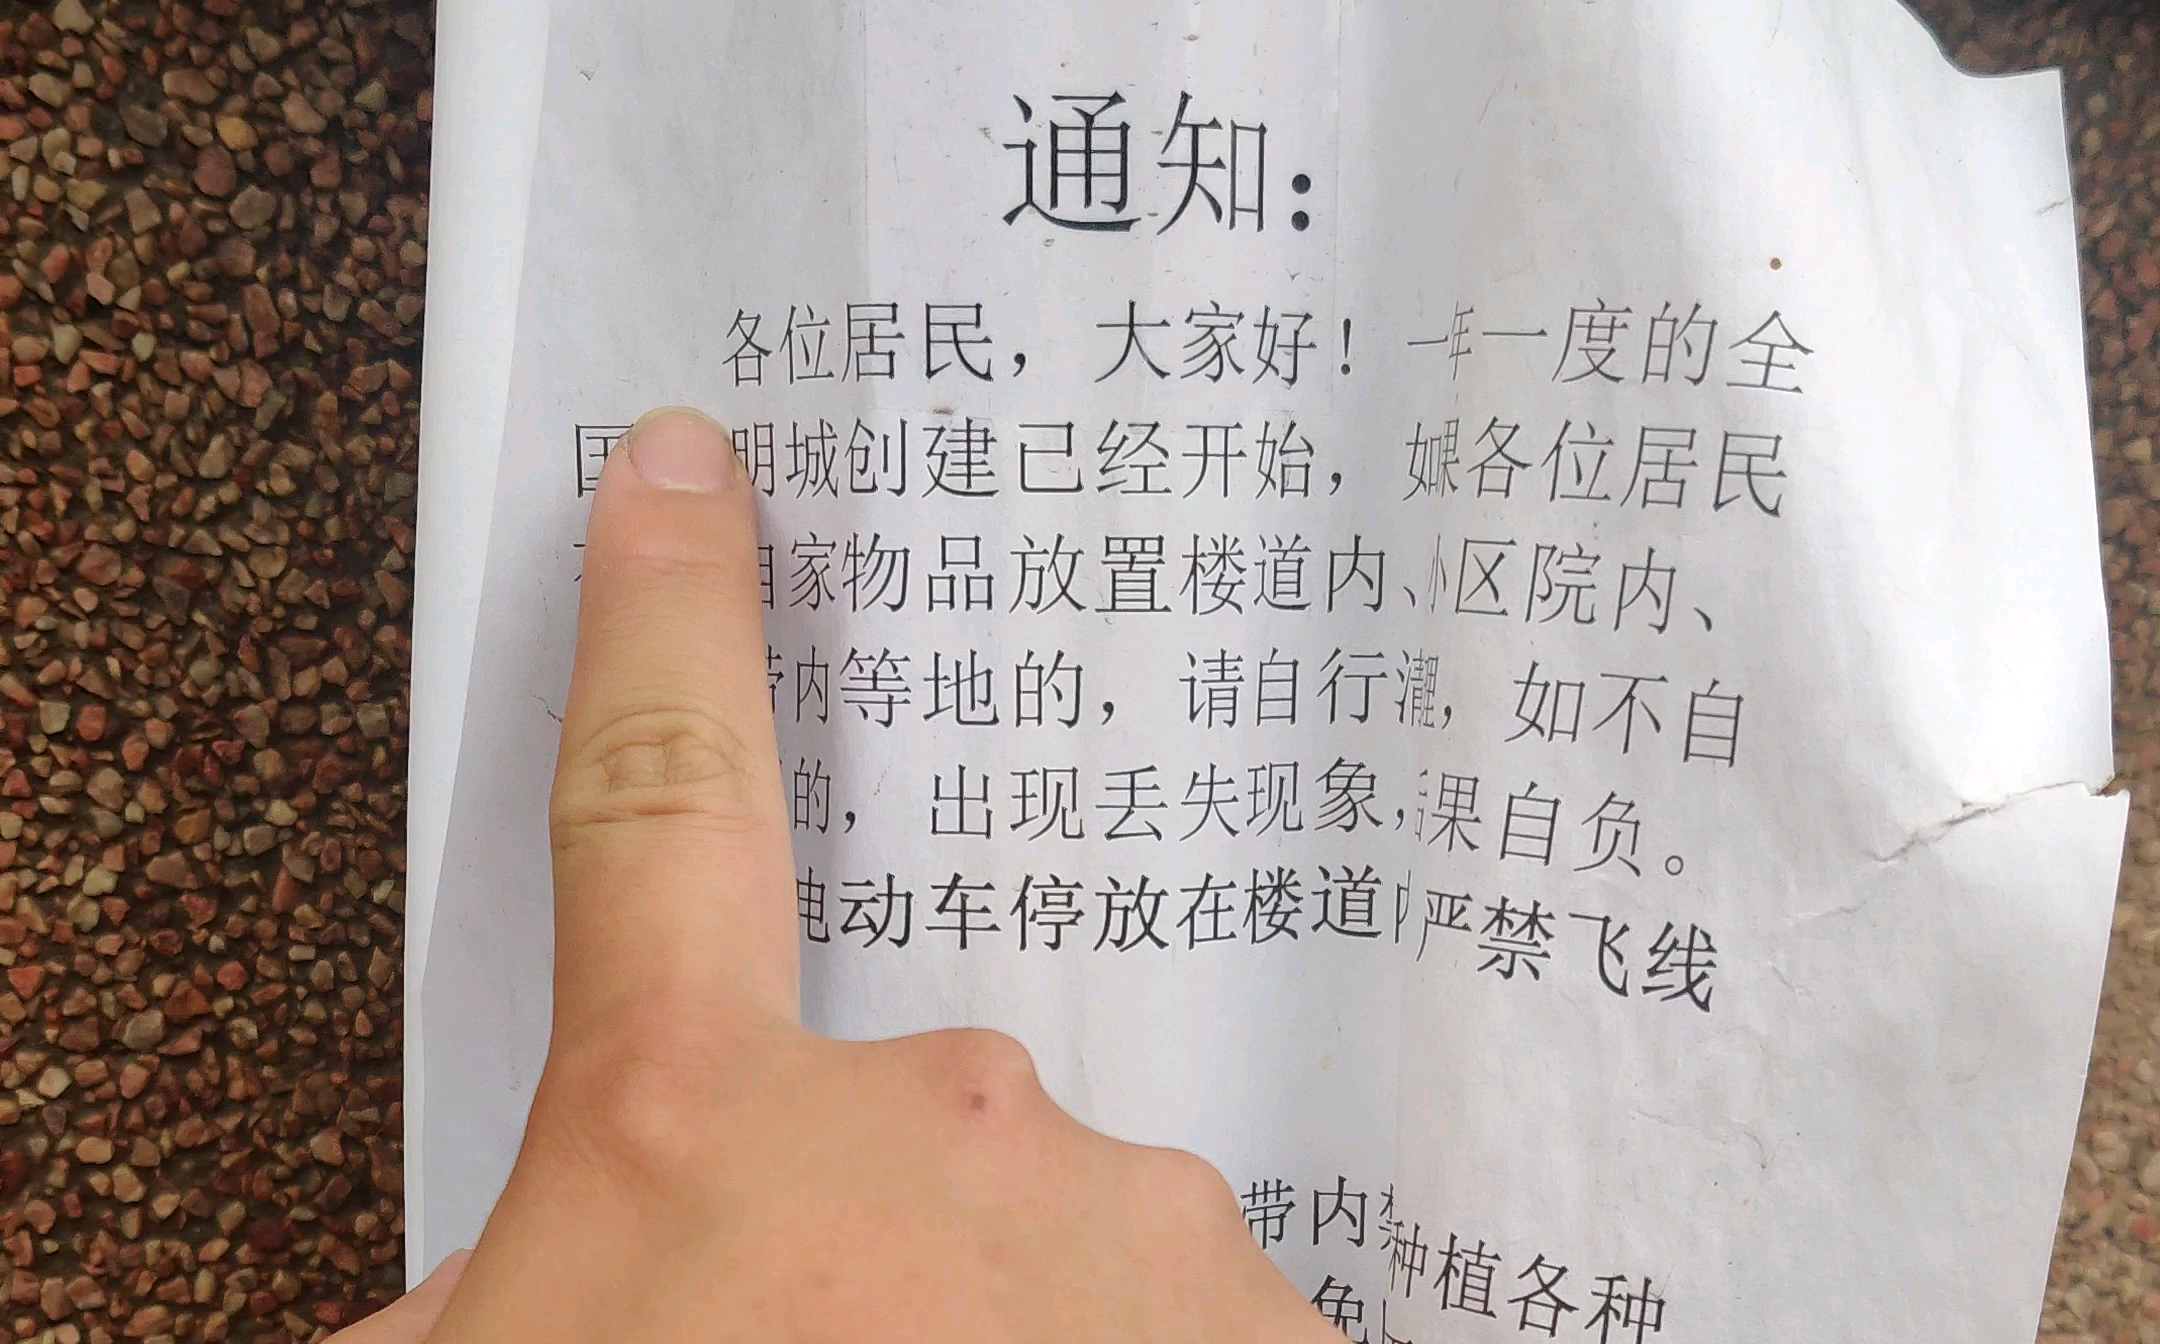 通知：
各位居民，大家好！一年一度的全
国明城创建已经开始，如果各位居民
自家物品放置楼道内、小区院内、
带内等地的，请自行清理，如不自
的，出现丢失现象，后果自负。
电动车停放在楼道内严禁飞线
带内禁种植各种